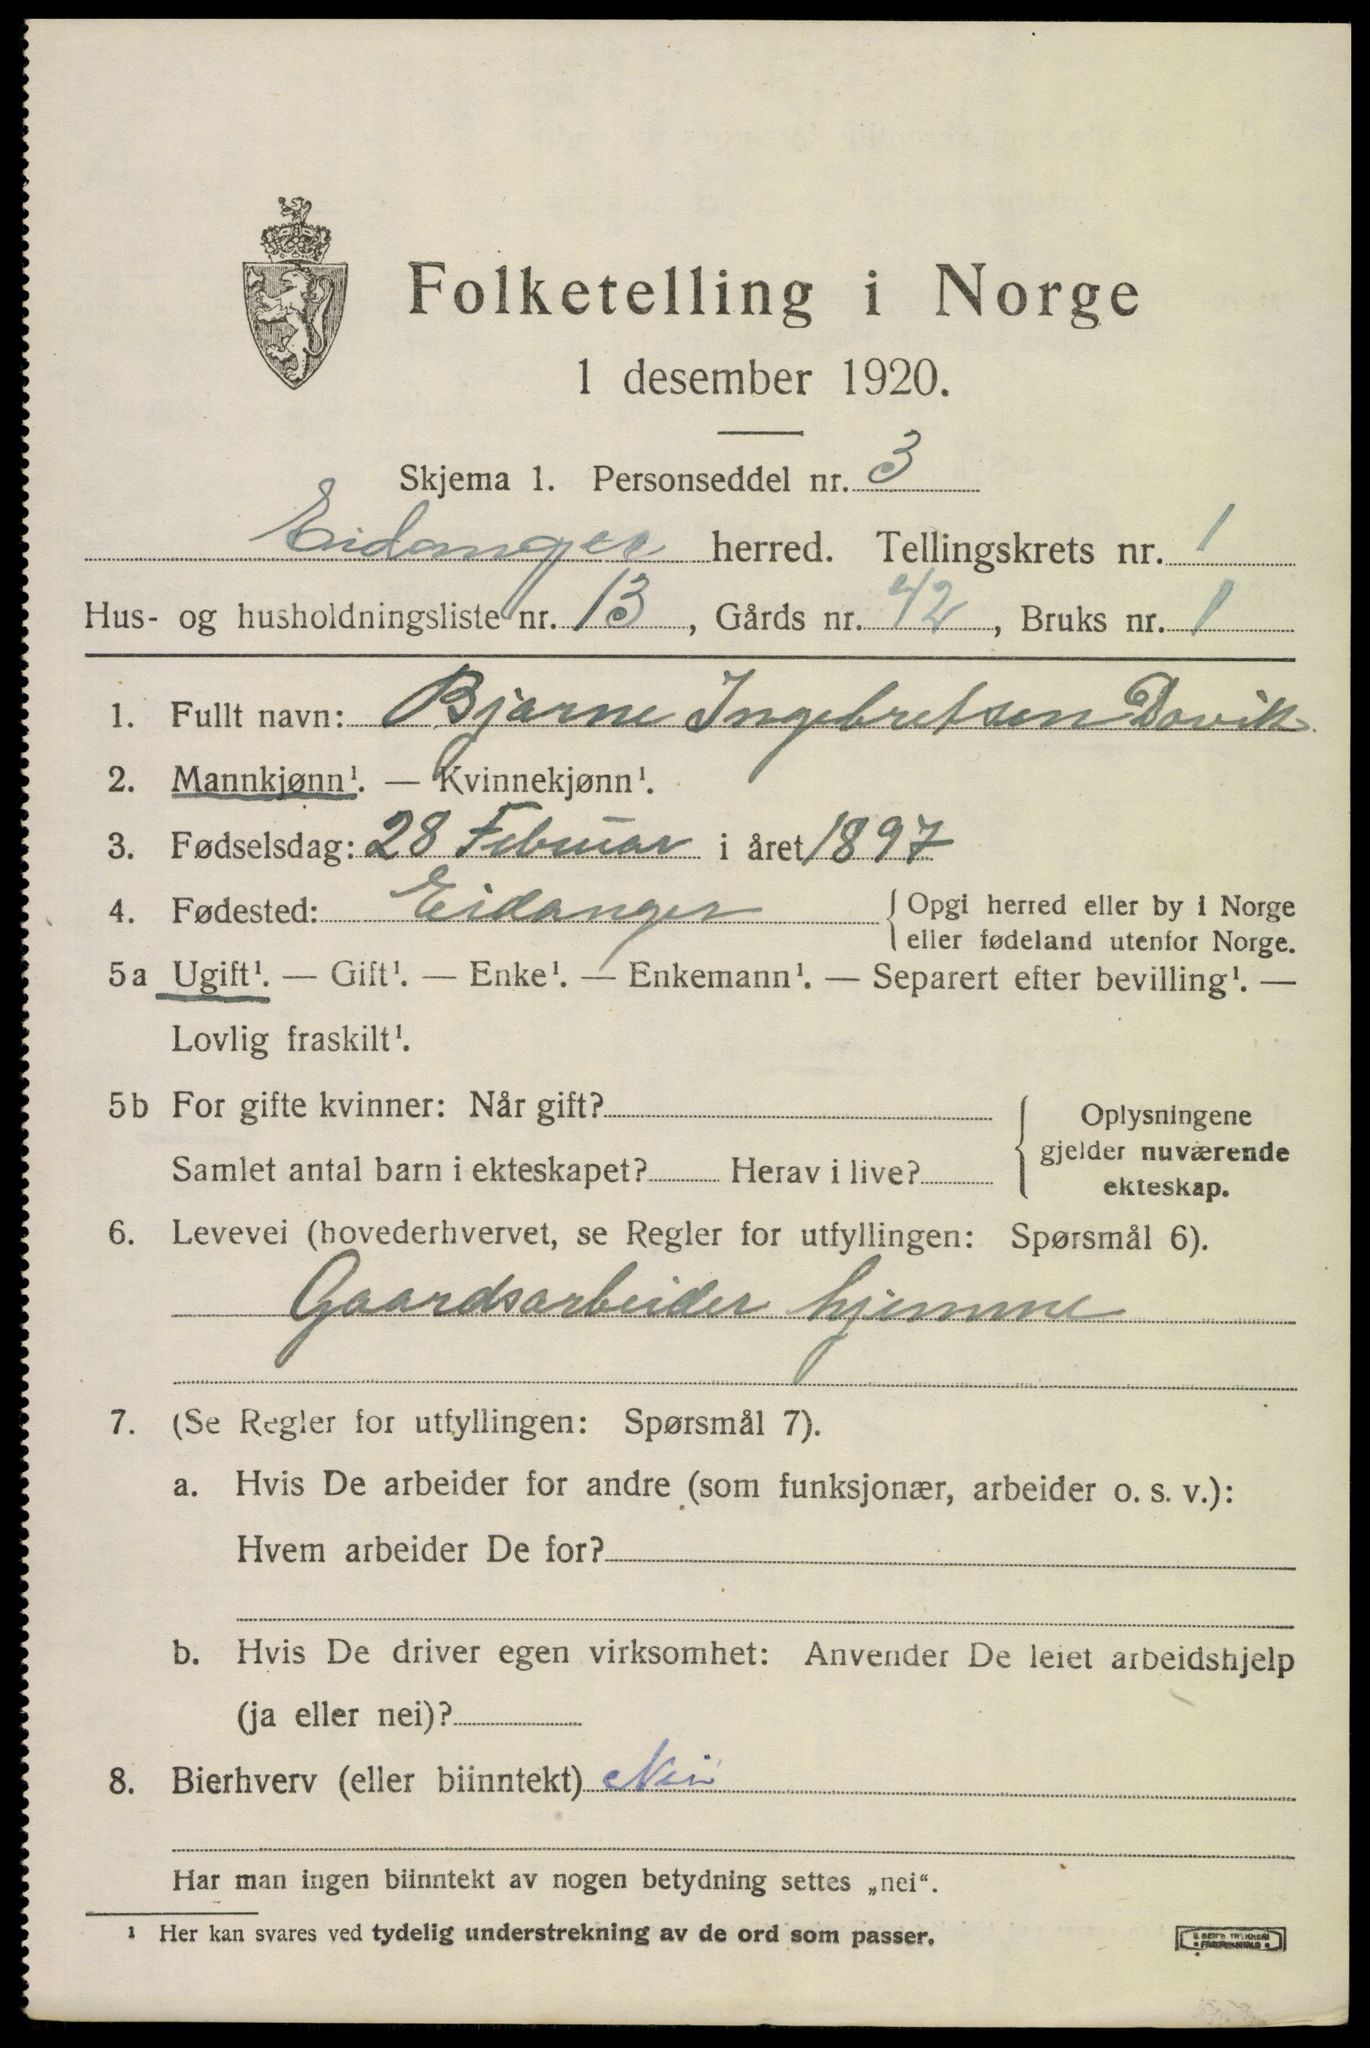 Folketelling i Norge
1 desember 1920.
Skjema 1. Personseddel nr. 3
Eidanger herred. Tellingskrets nr. 1
Hus- og husholdningsliste nr. 13, Gårds nr. 42, Bruks nr. 1
1. Fullt navn: Bjarne Ingebretsen Dovik
2. Mannkjønn¹. — Kvinnekjønn¹.
3. Fødselsdag: 28 Februar i året 1897
4. Fødested: Eidanger { Opgi herred eller by i Norge
eller fødeland utenfor Norge.
5a Ugift¹. — Gift¹. — Enke¹. — Enkemann¹. — Separert efter bevilling¹. —
Lovlig fraskilt¹.
5b For gifte kvinner: Når gift? { Oplysningene
gjelder nuværende
Samlet antal barn i ekteskapet? Herav i live?
ekteskap.
6. Levevei (hovederhvervet, se Regler for utfyllingen: Spørsmål 6).
Gaardsarbeider hjemme
7. (Se Regler for utfyllingen: Spørsmål 7).
a. Hvis De arbeider for andre (som funksjonær, arbeider o. s. v.):
Hvem arbeider De for?
b. Hvis De driver egen virksomhet: Anvender De leiet arbeidshjelp
(ja eller nei)?
8. Bierhverv (eller biinntekt) Nei
Har man ingen biinntekt av nogen betydning settes „nei“.
¹ Her kan svares ved tydelig understrekning av de ord som passer.